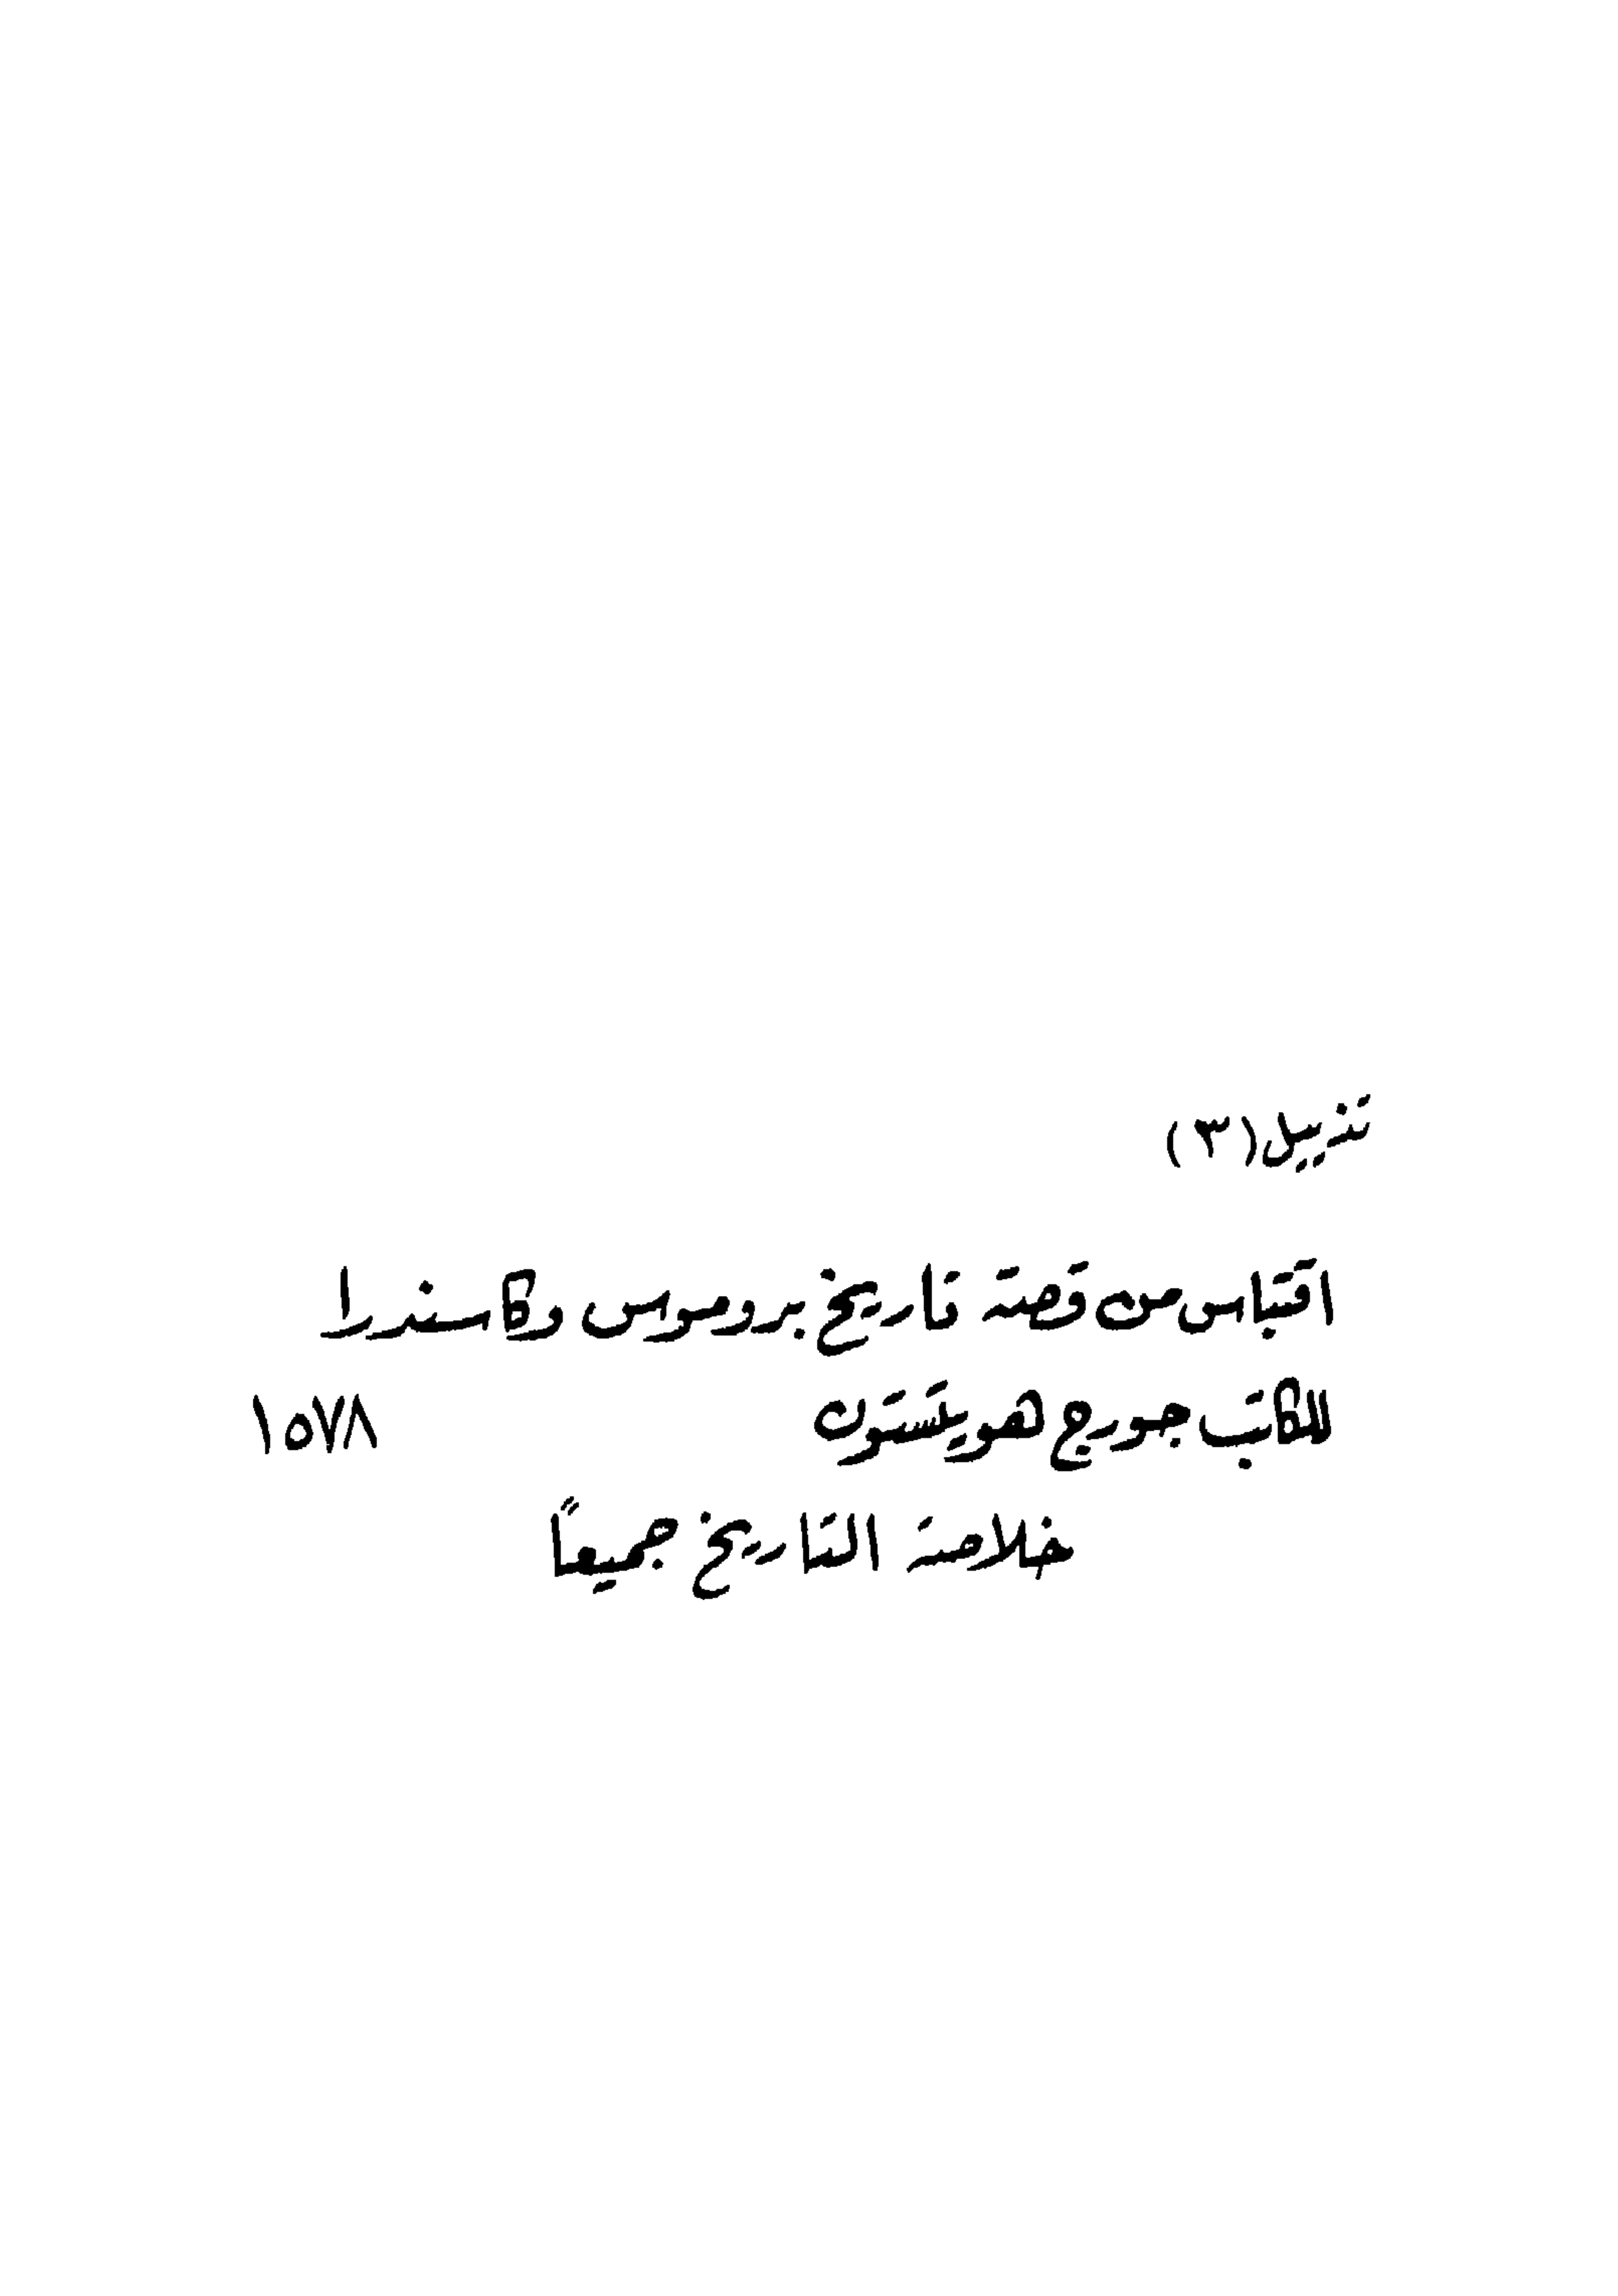 تذييل (٣)
اقتباس من قصة تاريخ بروموس وكاسندرا
للكاتب جوريج هويتستون ١٥٧٨
خلاصة التاريخ جميعاً